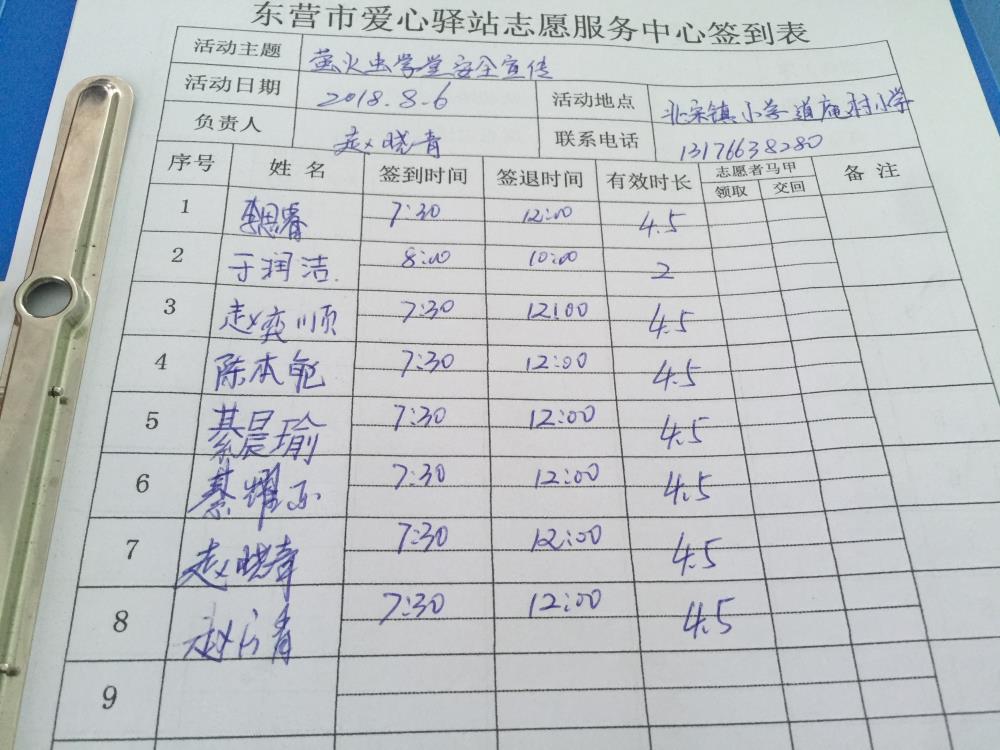 东营市爱心驿站志愿服务中心签到表
活动主题 萤火虫学堂安全宣传
活动日期 2018.8.6 活动地点 北宋镇小学道庵村小学
负责人 赵晓青 联系电话 13176638280
序号 姓名 签到时间 签退时间 有效时长 志愿者马甲 备注
领取 交回
1 7:30 12:00 4.5
2 于润洁. 8:00 10:00 2
3 赵奕顺 7:30 12:00 4.5
4 陈本乾 7:30 12:00 4.5
5 綦晨瑜 7:30 12:00 4.5
6 綦耀 7:30 12:00 4.5
7 赵晓 7:30 12:00 4.5
8 赵 青 7:30 12:00 4.5
9